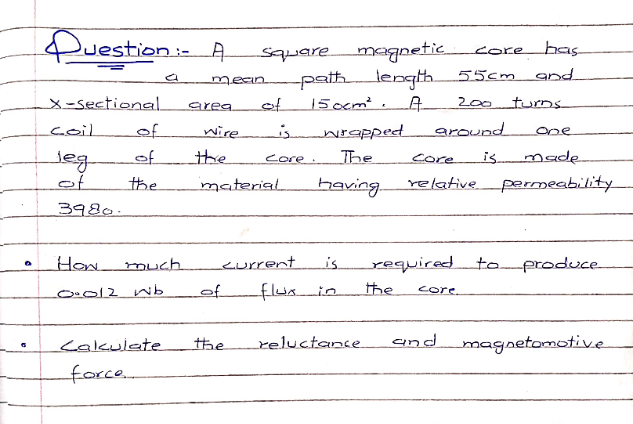 Question :- A square magnetic core has
a mean path length 55cm and
X-sectional area of 150cm². A 200 turns
coil of wire is wrapped around one
leg of the core. The core is made
of the material having relative permeability
3980.
• How much current is required to produce
0.012 wb of flux in the core.
• Calculate the reluctance and magnetomotive
force.